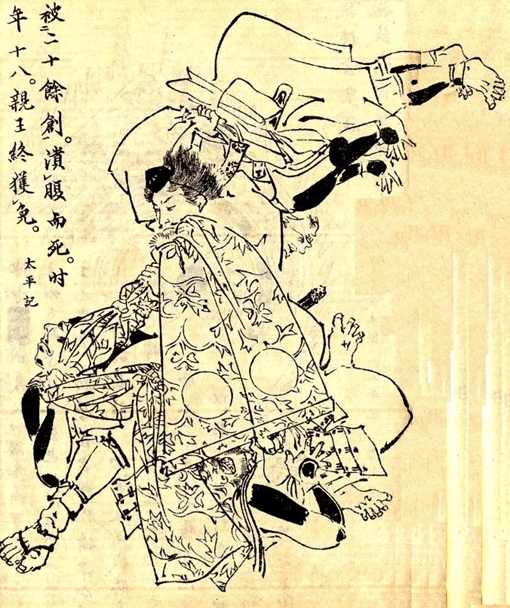 被二十餘創。潰腹而死。时
年十八。親王終獲免。
太平記